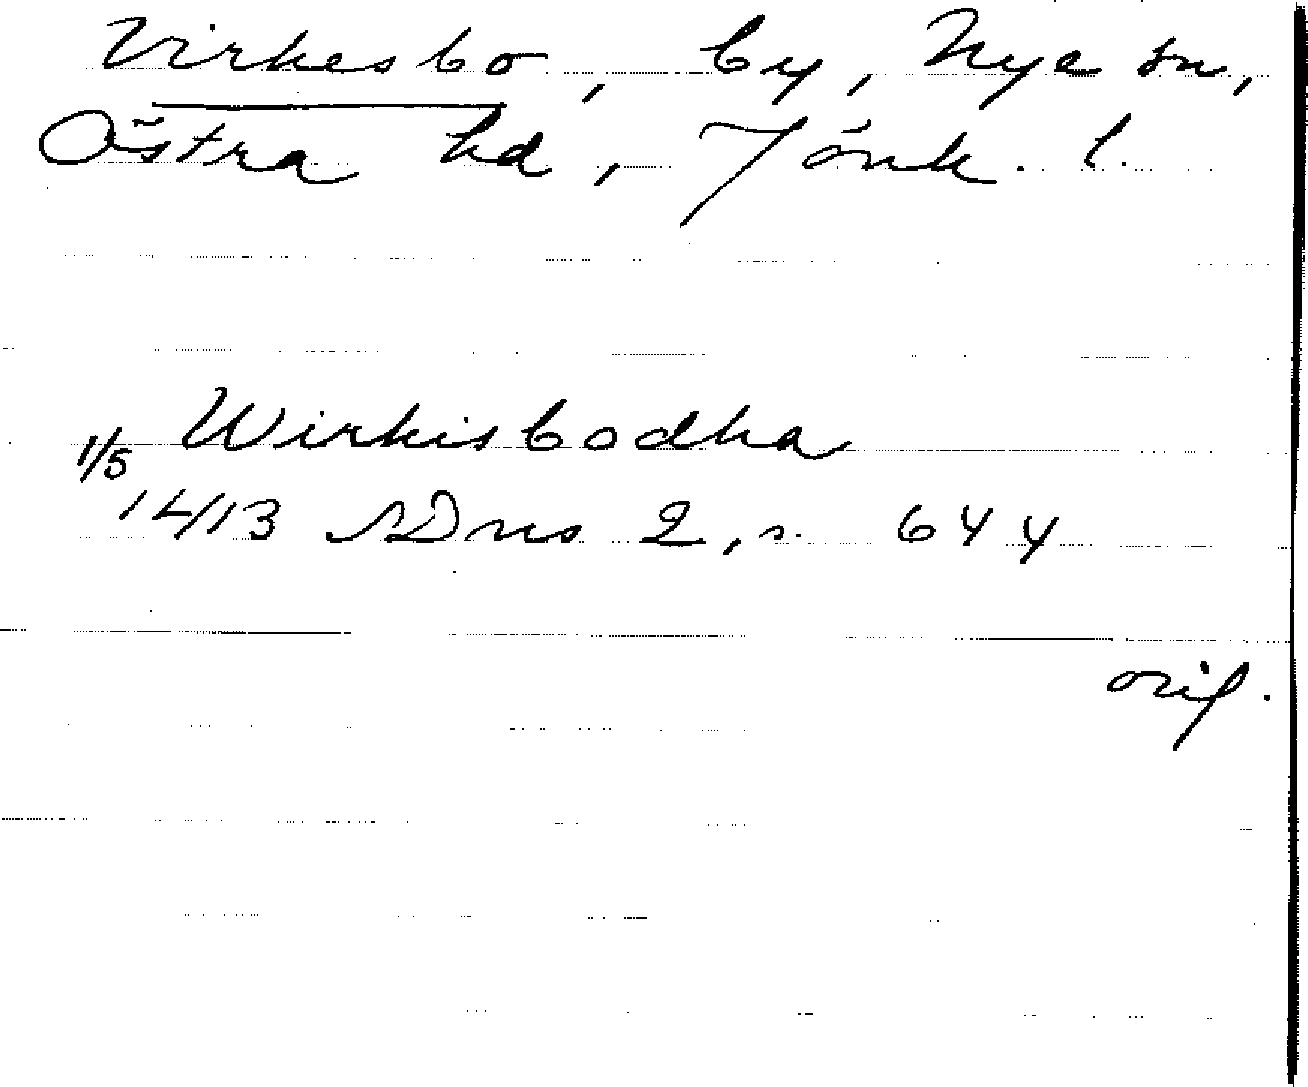 Virkesbo, by, Nye sn,
Östra hd, Jönk. l.
Wirkisbodha
1/5
1413 SDns 2, s. 644
orig.